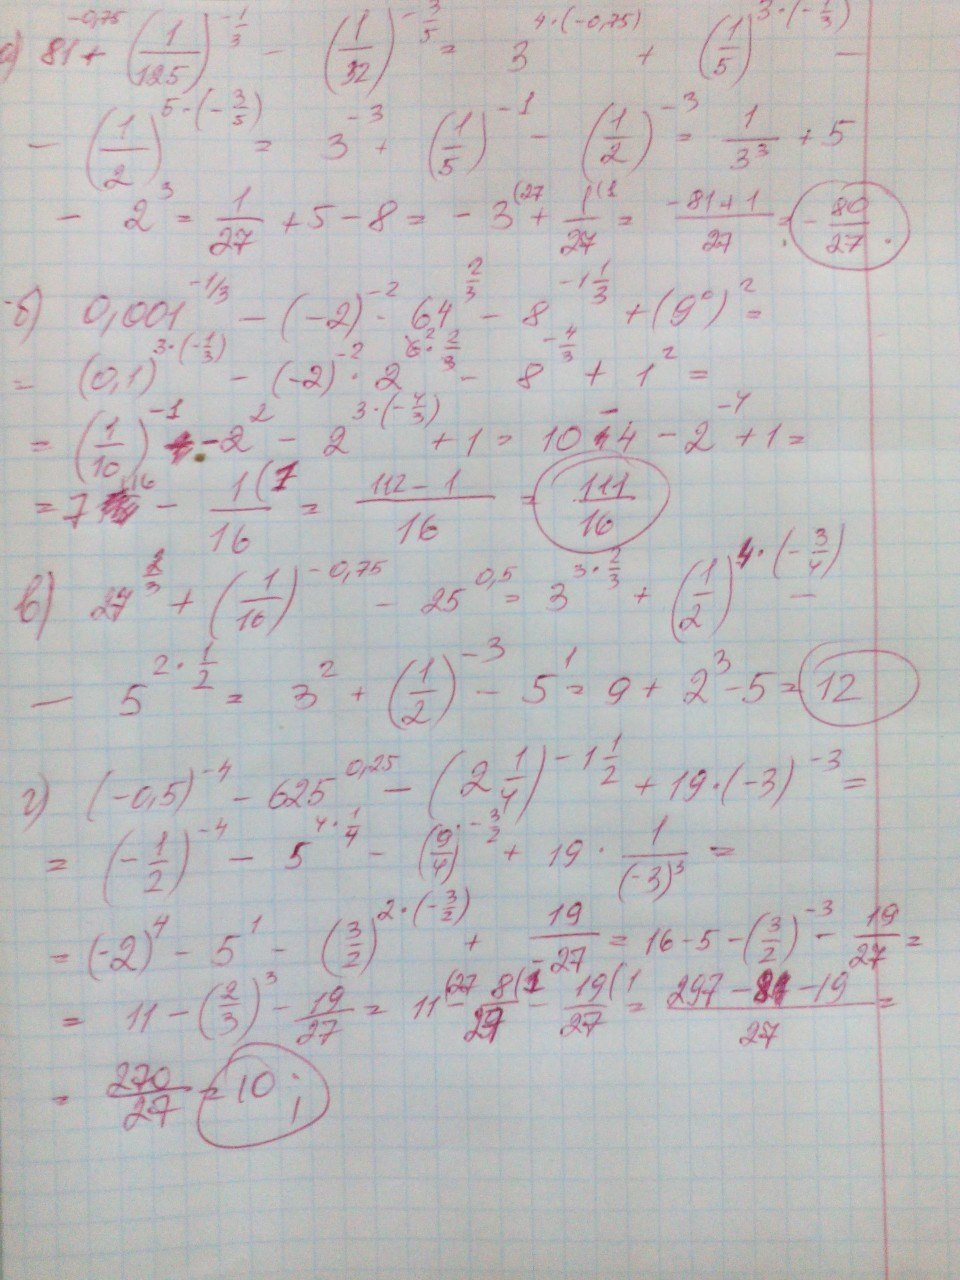 а) 81^{-0,75} + (1/125)^{-1/3} - (1/32)^{-3/5} = 3^{4·(-0,75)} + (1/5)^{3·(-1/3)} -
- (1/2)^{5·(-3/5)} = 3^{-3} + (1/5)^{-1} - (1/2)^{-3} = 1/3^3 + 5
- 2^3 = 1/27 + 5 - 8 = - 3^{(27} + 1^{(1}/27 = (-81+1)/27 = - 80/27.
б) 0,001^{-1/3} - (-2)^{-2} · 64^{2/3} - 8^{-1 1/3} + (9^0)^2 =
= (0,1)^{3·(-1/3)} - (-2)^{-2} · 2^{6·2/3} - 8^{-4/3} + 1^2 =
= (1/10)^{-1} - 2^2 - 2^{3·(-4/3)} + 1 = 10 - 4 - 2^{-4} + 1 =
= 7^{16} - 1^{(1}/16 = (112 - 1)/16 = 111/16
в) 27^{2/3} + (1/16)^{-0,75} - 25^{0,5} = 3^{3·2/3} + (1/2)^{4·(-3/4)} -
- 5^{2·1/2} = 3^2 + (1/2)^{-3} - 5^1 = 9 + 2^3 - 5 = 12
г) (-0,5)^{-4} - 625^{0,25} - (2 1/4)^{-1 1/2} + 19·(-3)^{-3} =
= (-1/2)^{-4} - 5^{4·1/4} - (9/4)^{-3/2} + 19 · 1/(-3)^3 =
= (-2)^4 - 5^1 - (3/2)^{2·(-3/2)} + 19/-27 = 16 - 5 - (3/2)^{-3} - 19/27 =
= 11 - (2/3)^3 - 19/27 = 11^{(27} - 8^{(1}/27 - 19^{(1}/27 = (297 - 8 - 19)/27 =
= 270/27 = 10;